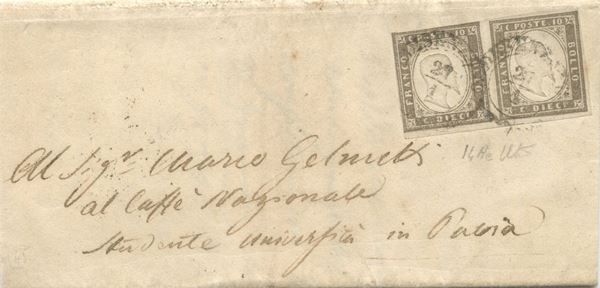 C. POSTE 10 C. POSTE 10
FRANCO BOLLO FRANCO BOLLO
C. DIECI C. DIECI
Al Sig.r Mario Gelmetti
al Caffè Nazionale
Studente Università in Pavia